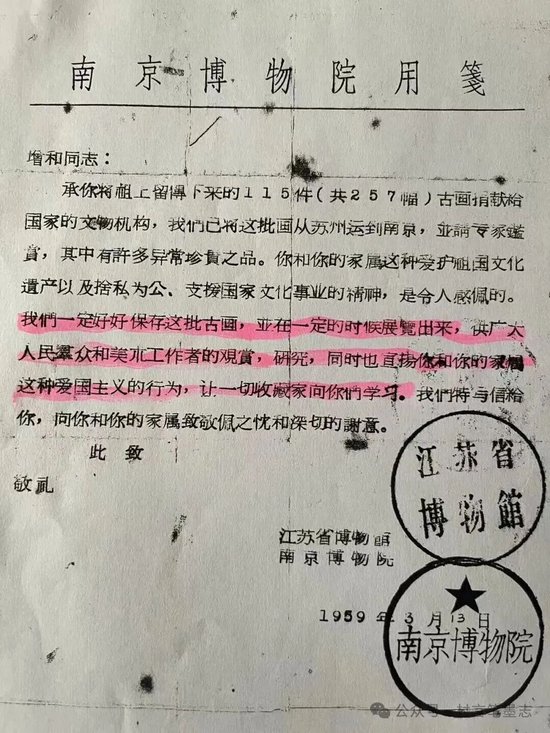 南京博物院用笺
增和同志：
承你将祖上留傳下来的115件（共257幅）古画捐献给
国家的文物机构，我們已将这批画从苏州运到南京，並請专家鑑
賞，其中有許多异常珍貴之品。你和你的家属这种爱护祖国文化
遺产以及捨私为公、支援国家文化事业的精神，是令人感佩的。
我們一定好好保存这批古画，並在一定的时候展覽出来，供广大
人民羣众和美朮工作者的观賞，研究，同时也直揚你和你的家属
这种爱国主义的行为，让一切收藏家向你們学习。我們特与信給
你，向你和你的家属致敬佩之忱和深切的謝意。
此致
敬礼
江苏省博物館
南京博物院
1959年3月13日
江苏省
博物館
南京博物院
公众号